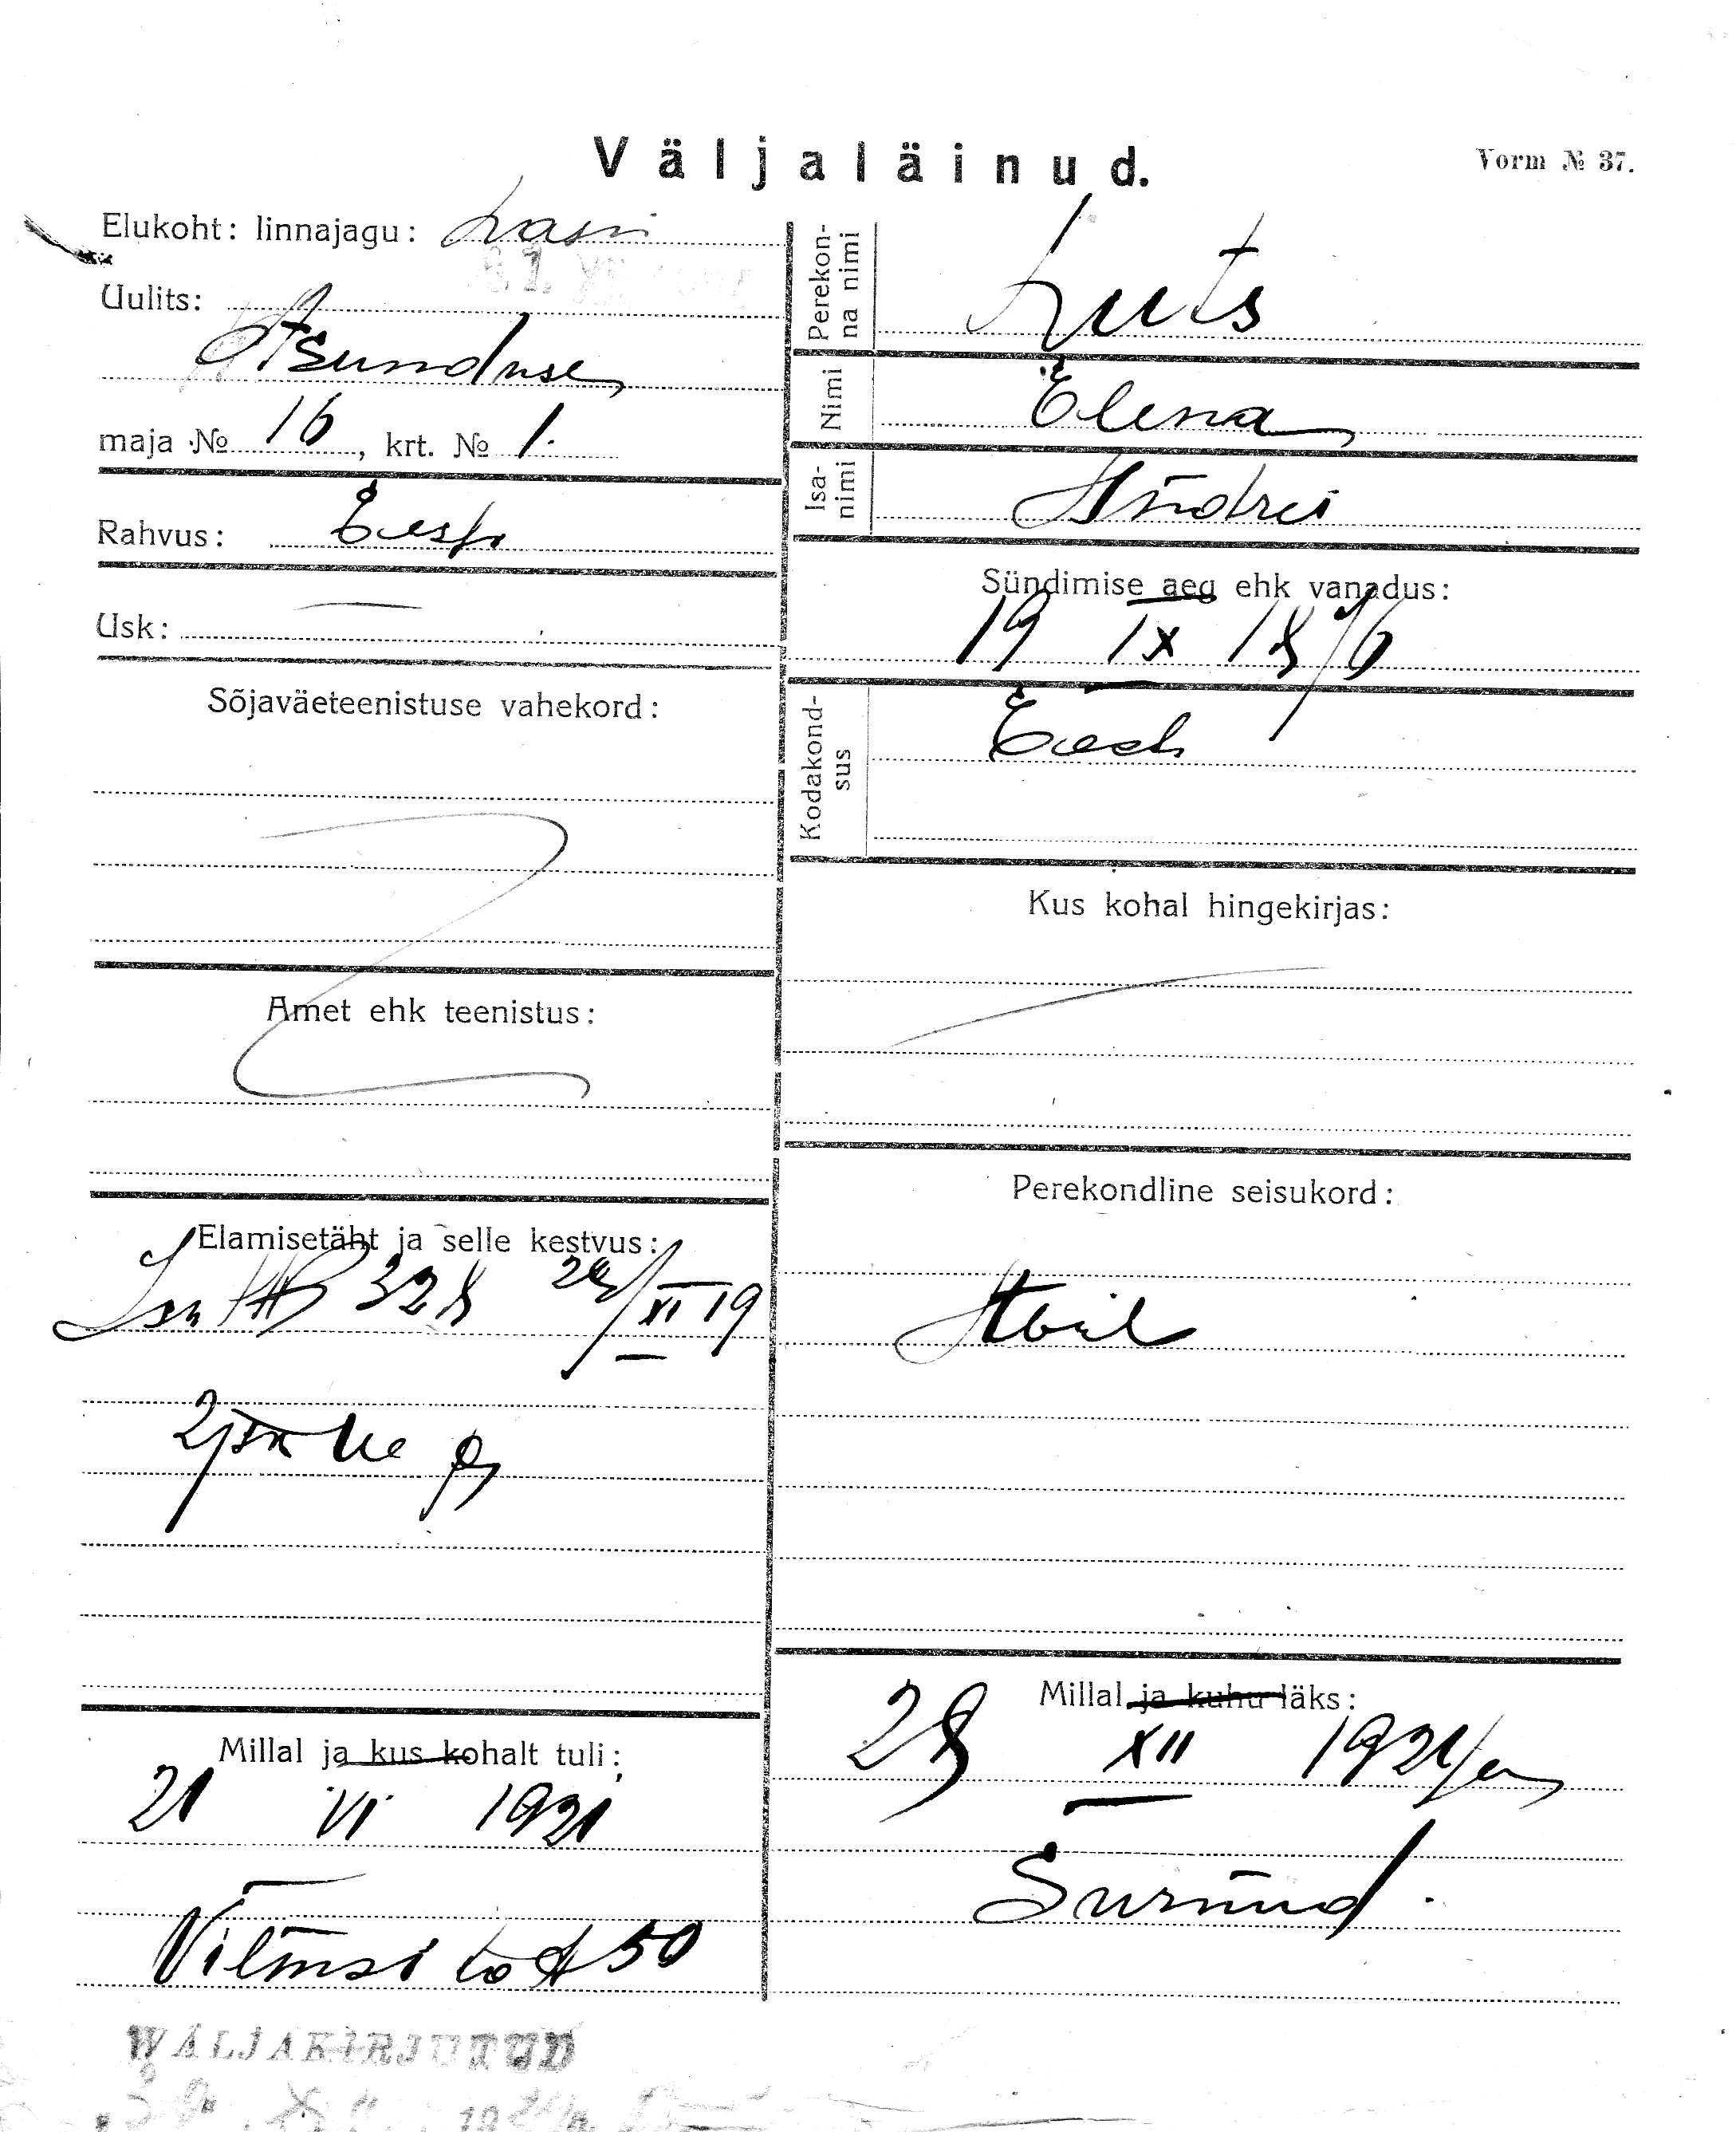 Väljaläinud.
Vorm № 37.
Elukoht: linnajagu:
Uulits:
Asunduse
maja № 16, krt. № 1.
Rahvus: Eesti
Usk: —
Sõjaväeteenistuse vahekord:
Amet ehk teenistus:
Elamisetäht ja selle kestvus:
328 XI 19
Millal ja kus kohalt tuli:
21 VI 1921
Vilmsi 50
Perekonna nimi
Luts
Nimi
Elena
Isanimi
Andrei
Sündimise aeg ehk vanadus:
19 IX 1876
Kodakondsus
Eesti
Kus kohal hingekirjas:
Perekondline seisukord:
Abiel
Millal ja kuhu läks:
28 XII 1921
Surnud.
WÄLJAKIRJUTUD